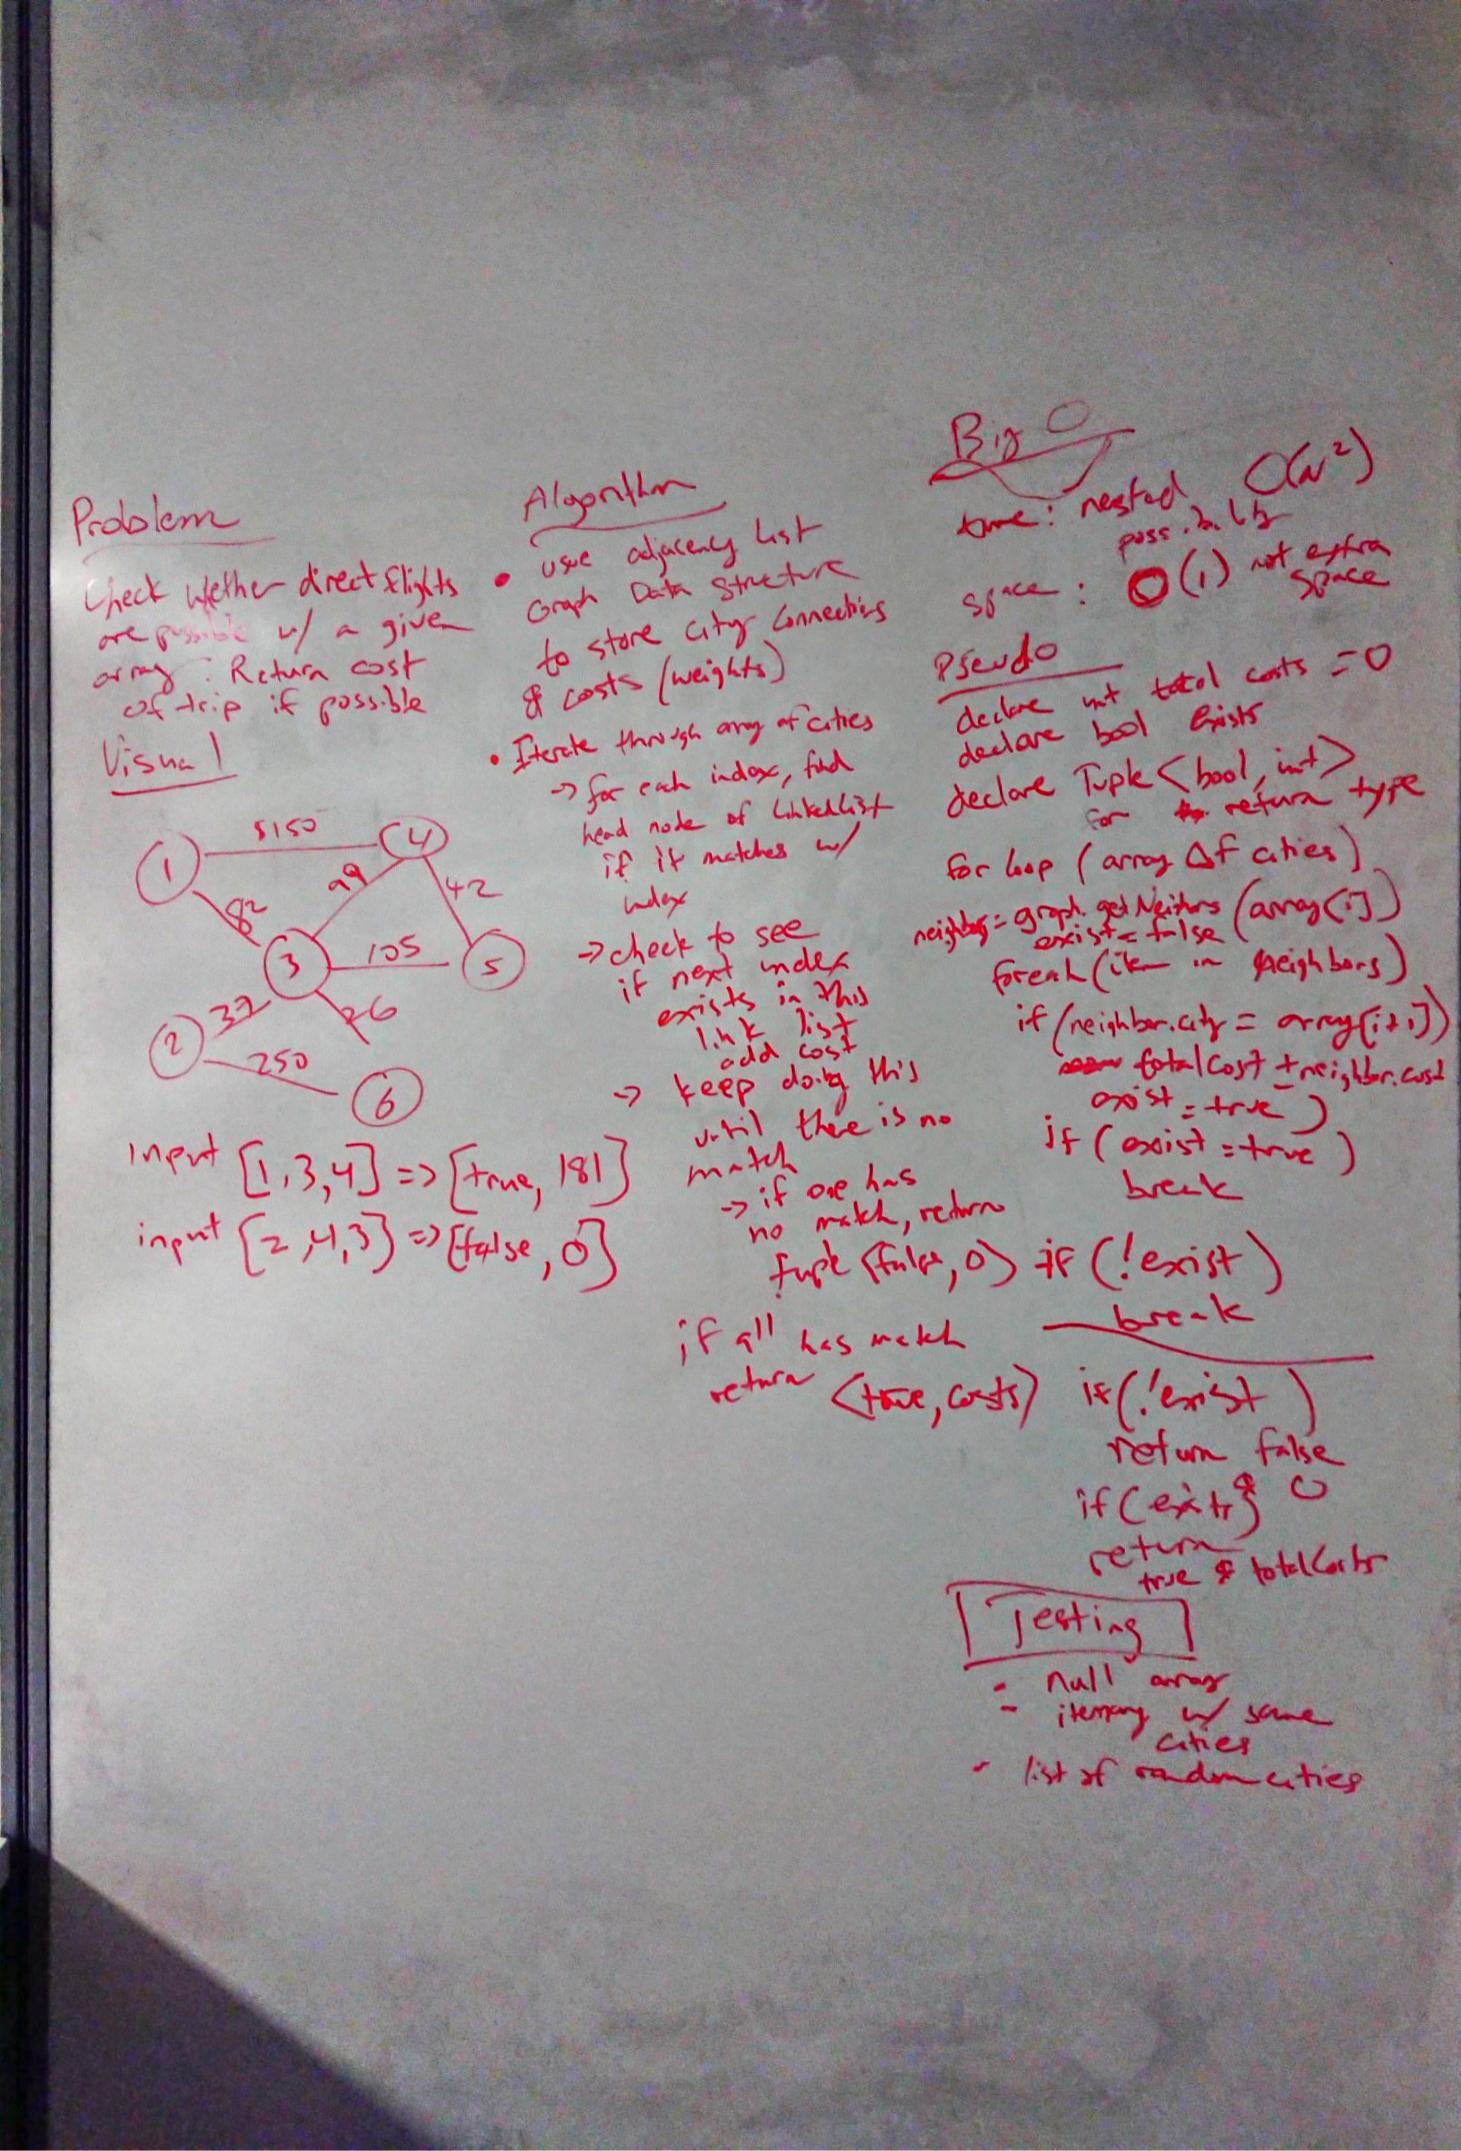 Problem
Check whether direct flights
are possible w/ a given
array. Return cost
of trip if possible
Visual
1
$150
4
82
99
42
3
105
5
37
26
2
250
6
input [1,3,4] => [true, 181]
input [2,4,3] => [false, 0]
Algorithm
• use adjacency list
Graph Data Structure
to store city connections
& costs (weights)
• Iterate through array of cities
-> for each index, find
head node of LinkedList
if it matches w/
index
-> check to see
if next index
exists in this
link list
add cost
-> keep doing this
until there is no
match
-> if one has
no match, return
tuple (false, 0)
if all has match
return <true, costs)
Big O
time: nested O(n²)
possibly
space: O(1) not extra
space
Pseudo
declare int total costs = 0
declare bool Exists
declare Tuple <bool, int>
for return type
for loop (array of cities)
neighbors = graph.getNeibors (array[i])
exist = false
foreach (item in neighbors)
if (neighbor.city = array[i+1])
totalCost += neighbor.cost
exist = true )
if (exist = true )
break
if (!exist)
break
if (!exist )
return false
& 0
if (exists)
return
true & totalCosts
Testing
- null array
- itenrary w/ same
cities
- list of random cities